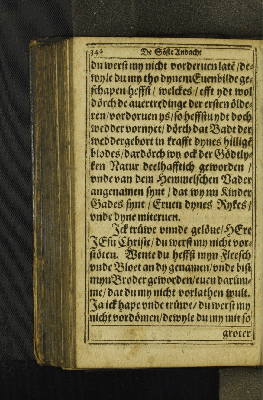 342 De Söste Andacht
du werst my nicht vorderuen latē / de-
wyle du my tho dynem Euenbilde ge-
schapen heffst / welckes / efft ydt wol
dörch de auertredinge der ersten ölde-
ren / vordoruen ys / so heffstu ydt doch
wedder vornyet / dörch dat Badt der
weddergebort in krafft dynes hillige
blodes / dardörch wy ock der Gödtly-
ken Natur deelhafftich geworden /
vnde van dem Hemmelschen Vader
angenamen synt / dat wy nu Kinder
Gades synt / Eruen dynes Rykes /
vnde dyne miteruen.
Ick trüwe vnde gelöue / HEre
JEsu Christe / du werst my nicht vor-
stöten. Wente du heffst myn Fleesch
vnde Bloet an dy genamen / vnde bist
myn Broder geworden / euen darüm-
me / dat du my nicht vorlathen wult.
Ja ick hape vnde trüwe / du werst my
nicht vordömen / dewyle du my mit so
groter